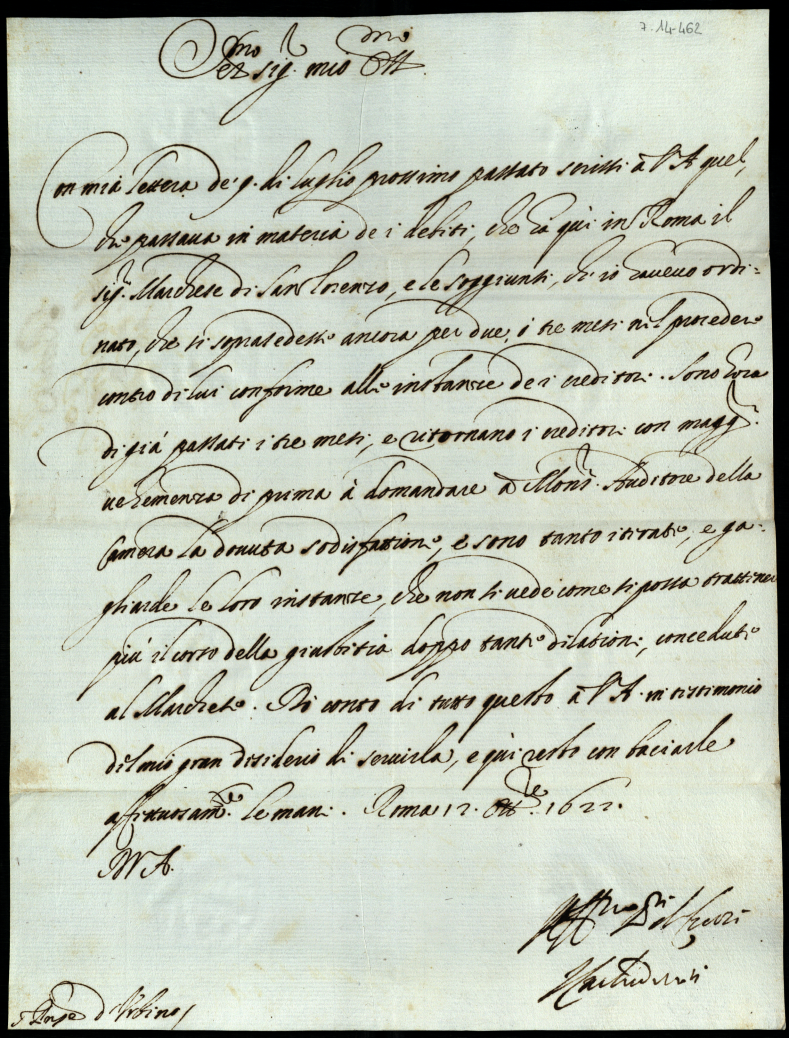 7-14-462
Ser.mo Sig.r mio Oss.mo
Con mia lettera de' 9. di luglio prossimo passato scrissi à V.A. quel,
che passaua in materia de i debiti, che hà quì in Roma il
sig.r Marchese di San Lorenzo, e le soggiunsi, ch'io haueuo ordi=
nato, che si soprasedesse ancora per due, ò tre mesi nel procedere
contro di lui conforme alle instanze de i creditori. Sono hora
di già passati i tre mesi, e ritornano i creditori con magg.r
uehemenza di prima à domandare à Mons.r Auditore della
Camera la douuta sodisfattione, e sono tanto iterate, e ga=
gliarde le loro instanze, che non si uede come si possa trattener
più il corso della giustitia doppo tante dilationi, concedute
al Marchese. Dò conto di tutto questo à V.A. in testimonio
del mio gran desiderio di seruirla, e quì resto con baciarle
affettuosam.te le mani. Roma 12. Ott.re 1622.
D V. A.
d'Urbino